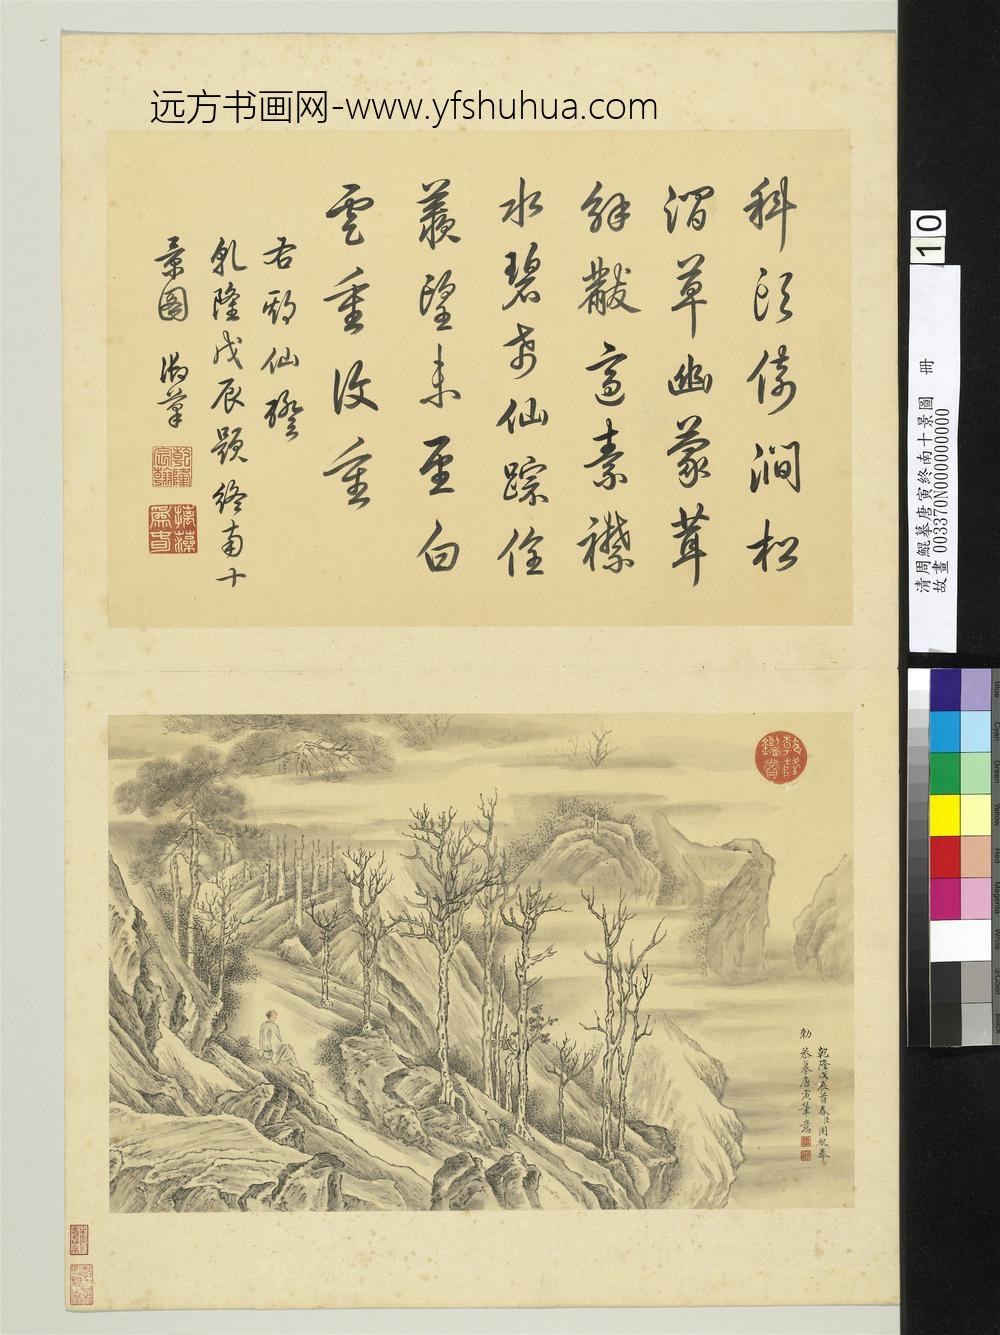 远方书画网-www.yfshuhua.com
科頭倚澗松
謖草幽蒙茸
解黻寫素襟
水碧當仙蹤
羨望未至白
雲重復重
乾隆戊辰題終南十
景圖 御筆
乾隆宸翰
摛藻為春
乾隆鑑賞
乾隆戊辰首春臣周鯤奉
勅恭摹唐寅筆意
10
清周鯤摹唐寅終南十景圖 冊
故畫 003370N000000000
Blue
Cyan
Green
Yellow
Red
Magenta
White